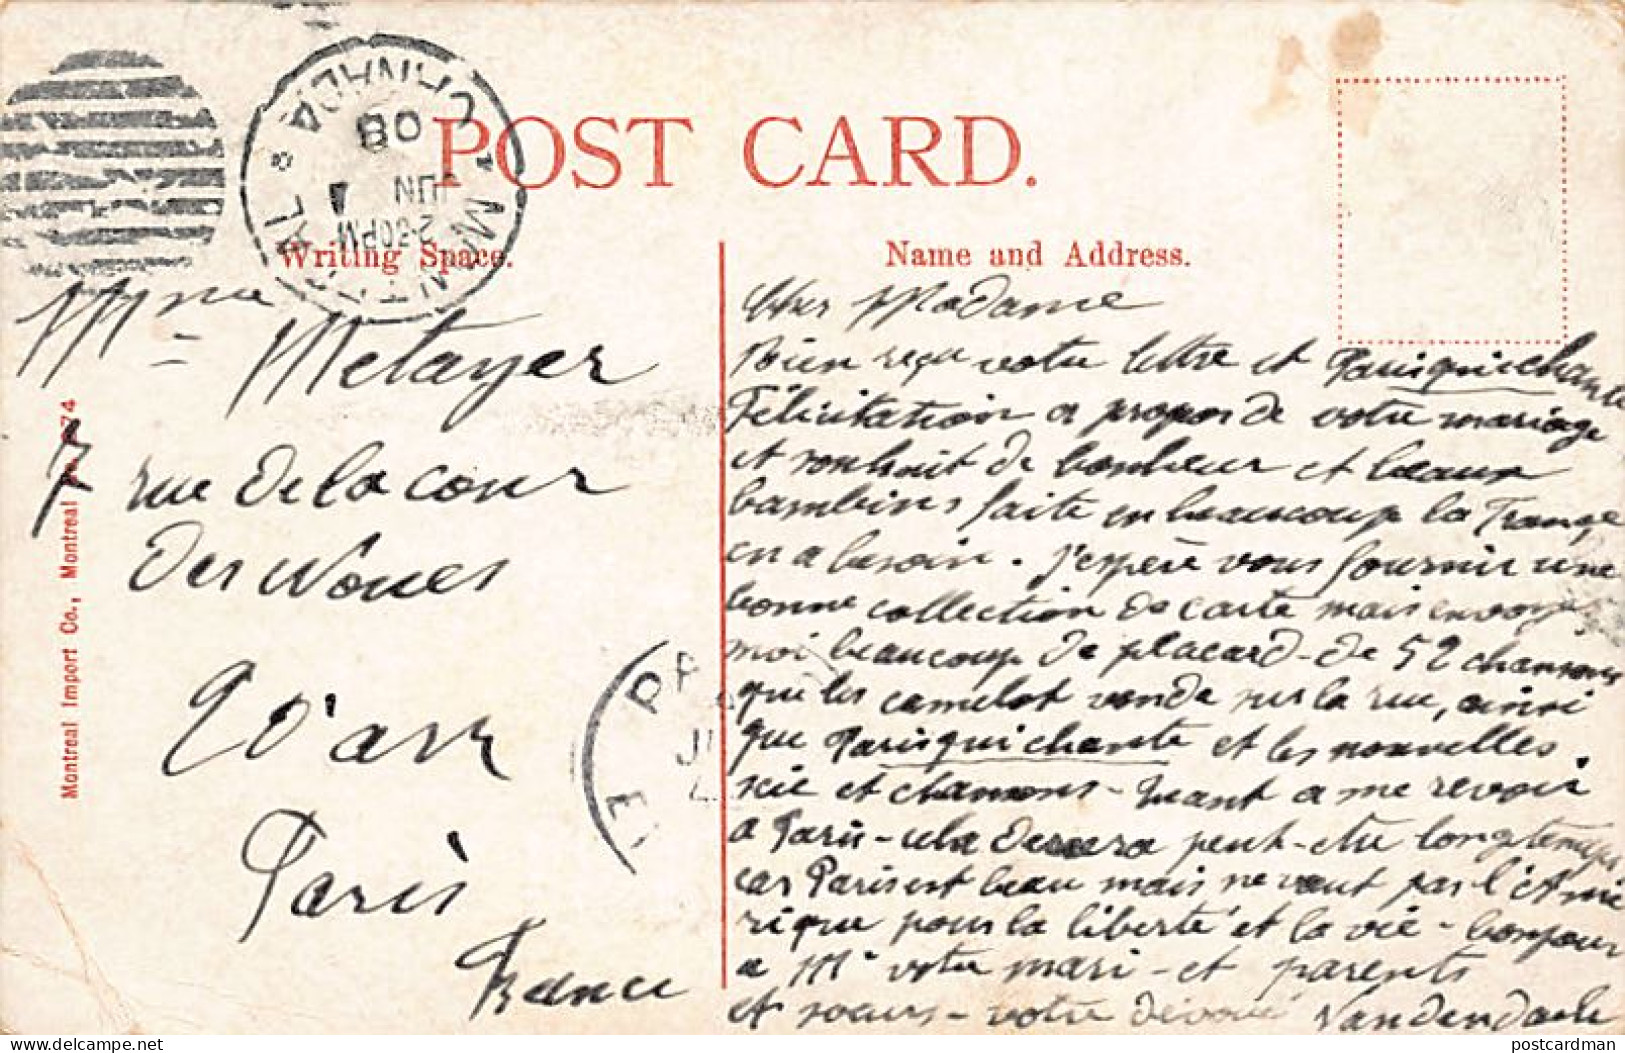 MONTREAL. CANADA
2-30 PM
JUN
08
POST CARD.
Writing Space.
Name and Address.
Mme Metayer
7 rue de la cour
des Noues
20 arr
Paris
France
Montreal Import Co., Montreal 74
Cher Madame
Bien reçu votre lettre et Paris qui chante
Félicitation a propos de votre mariage
et souhait de bonheur et beaux
bambins faite en beaucoup la France
en a besoin. J'espère vous fournir une
bonne collection de carte mais envoyez
moi beaucoup de placard de 52 chansons
que les camelot vende sur la rue, ainsi
que Paris qui chante et les nouvelles
scie et chansons - quant a me revoir
a Paris - cela durera peut-etre longtemps
car Paris est beau mais ne vaut pas l'Amé
rique pour la liberté et la vie - bonjour
a Mr votre mari - et parents
et soeurs - votre dévoué Vandendaele
delcampe.net
postcardman